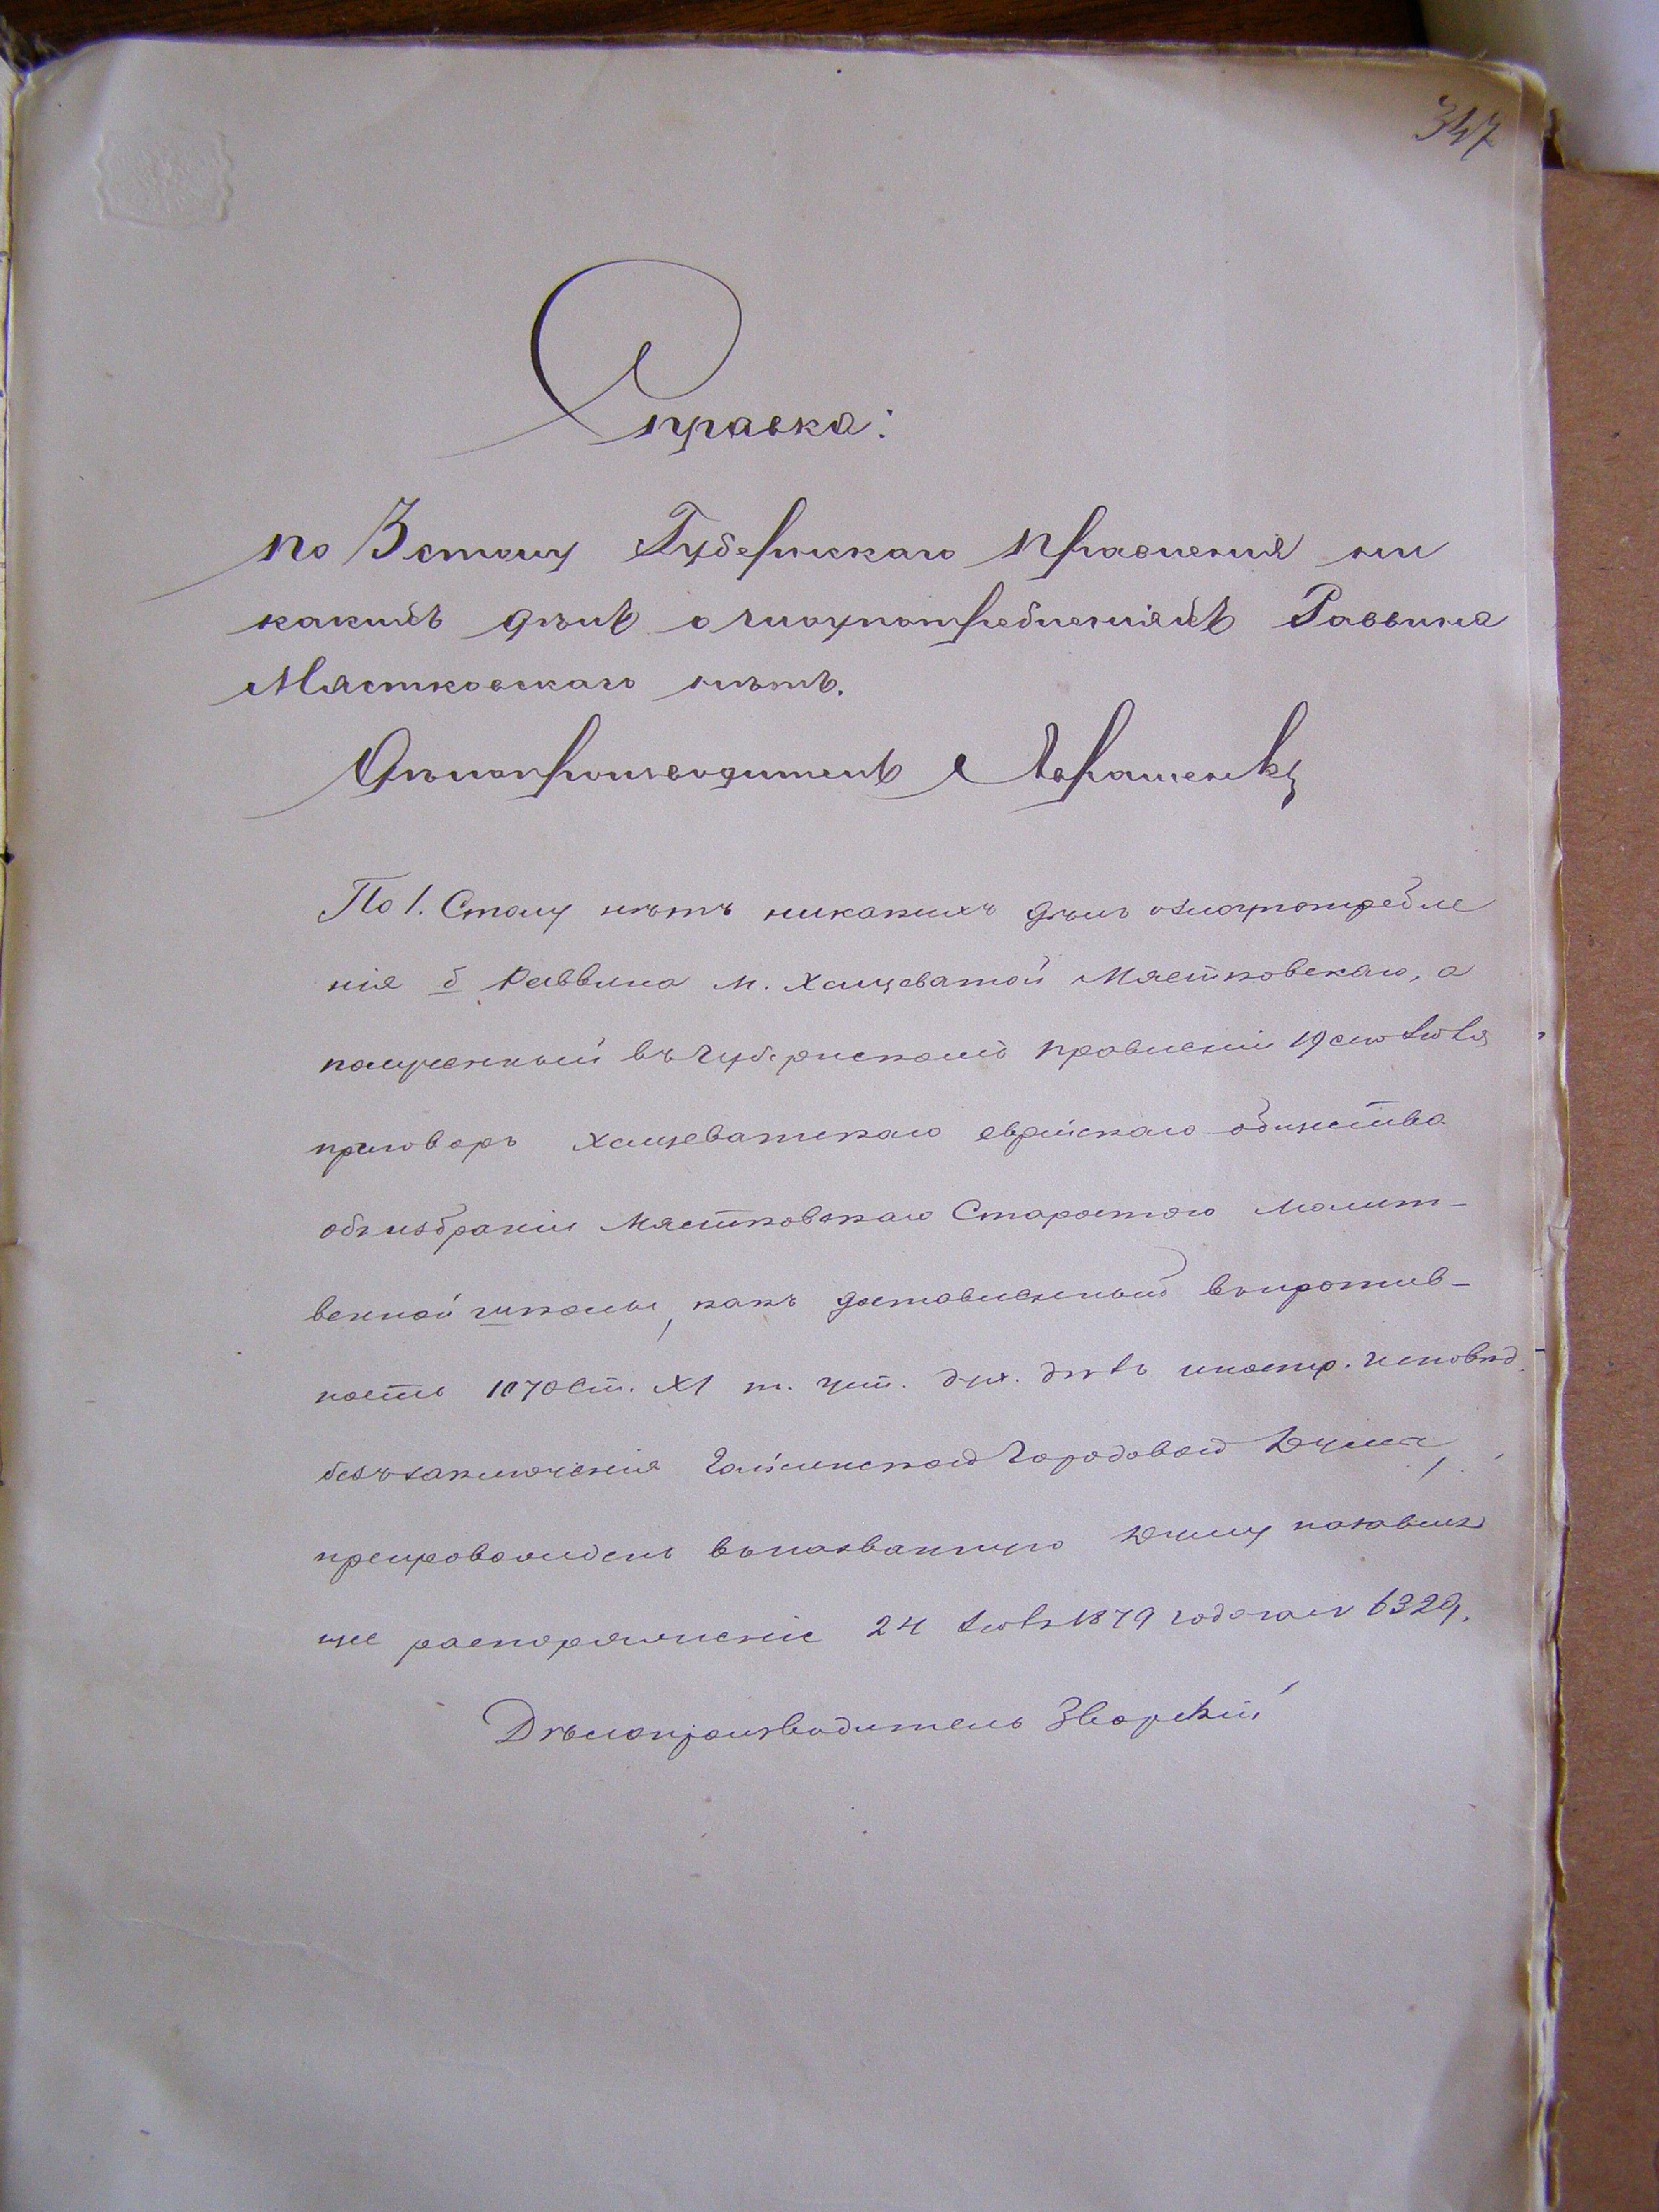 347
Справка:
по 3 столу Губернскаго Правленія ни
какихъ дѣлъ о злоупотребленіяхъ Раввина
Мястковскаго нѣтъ.
Дѣлопроизводитель
По 1. Столу нѣтъ никакихъ дѣлъ о злоупотребле
нія б Раввина м. Хащеватой Мястковскаго, а
полученный въ Губернскомъ Правленіи 19 сего Іюля
приговоръ Хащеватскаго еврейскаго общества
объ избраніи Мястковскаго Старостою Молит-
венной школы, какъ доставленный въ против-
ность 1070 ст. XI т. уст. дух. дѣлъ иностр. исповѣд.
безъ заключенія Гайсинской Городовой Думы,
препровожденъ въ названную Думу
щее распоряженіе 24 Іюля 1879 года за № 6329.
Дѣлопроизводитель Зворскій